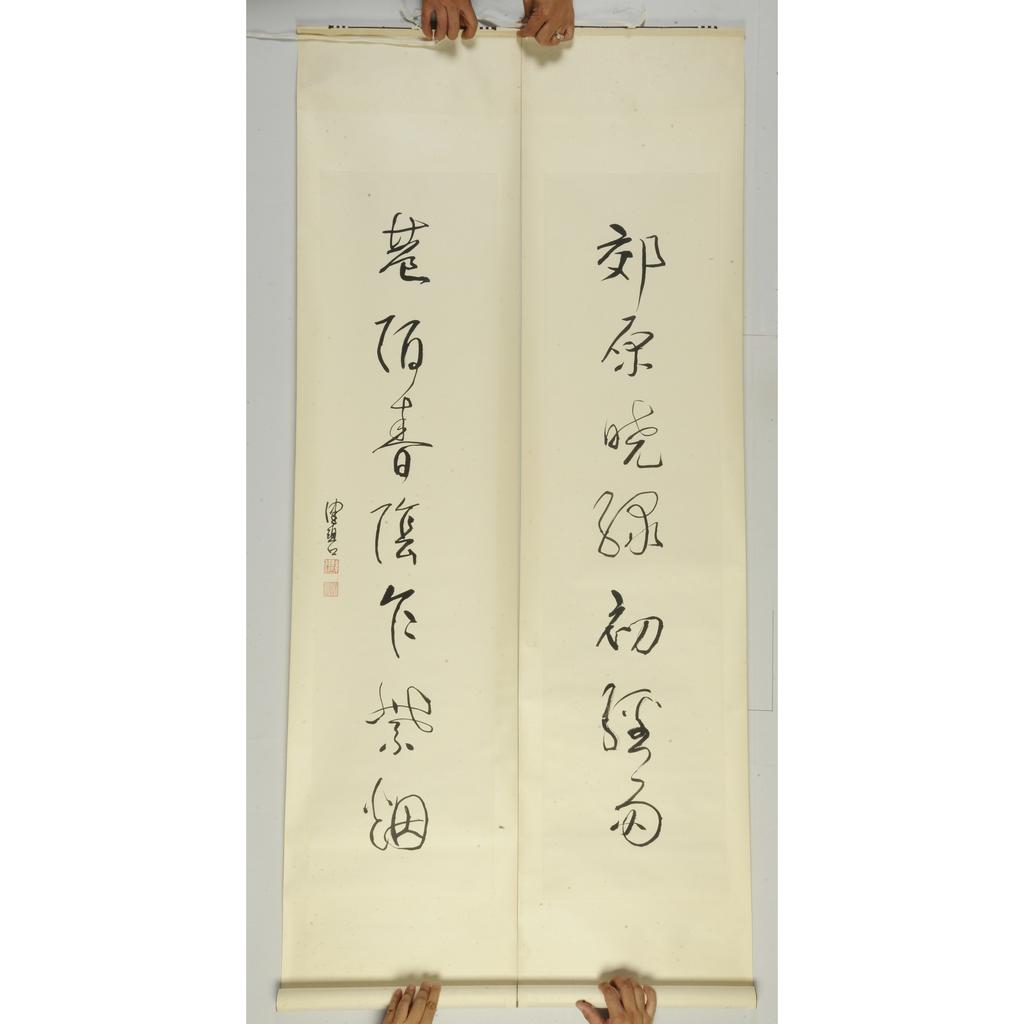 郊原曉綠初經雨
巷陌春陰乍禁烟